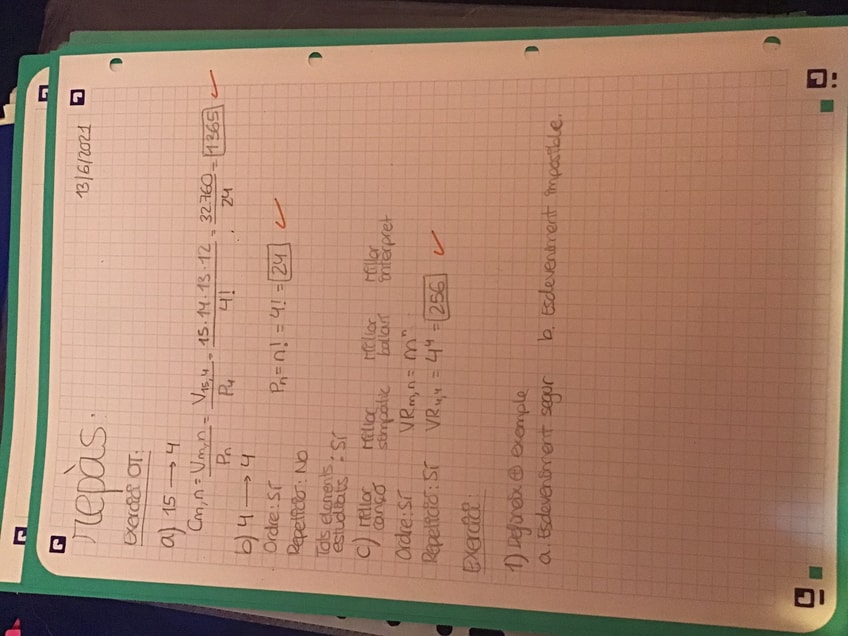 repàs.
13/6/2021
Exercici OT.
a) 15 → 4
Cm,n = Vm,n / Pn = V15,4 / P4 = 15·14·13·12 / 4! = 32.760 / 24 = 1365 ✓
b) 4 → 4
Ordre: Sí
Repetició: No
Pn = n! = 4! = 24 ✓
Tots elements
estudiats: Sí
c) Millor cançó Millor simpàtic Millor ballarí Millor intèrpret
Ordre: Sí VRm,n = mⁿ
Repetició: Sí VR4,4 = 4⁴ = 256 ✓
Exercici:
1) Defineix ⊕ exemple
a. Esdeveniment segur b. Esdeveniment impossible.